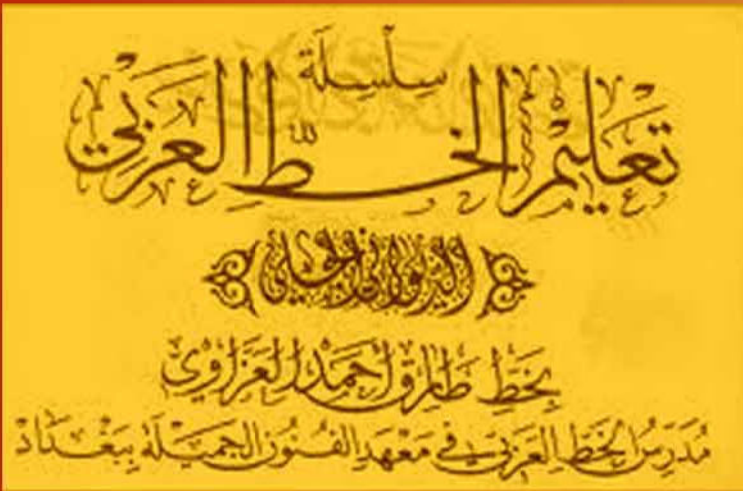 سِلْسِلَة
تَعْلِيمُ الخَطِّ العَرَبِيّ
الديواني الجلي
بِخَطِّ طَارِق أَحْمَد العَزَاوِيّ
مُدَرِسُ الخَطِ العَرَبِيّ فِي مَعْهَدِ الفُنُونِ الجَمِيْلَةِ بِبَغْدَادْ